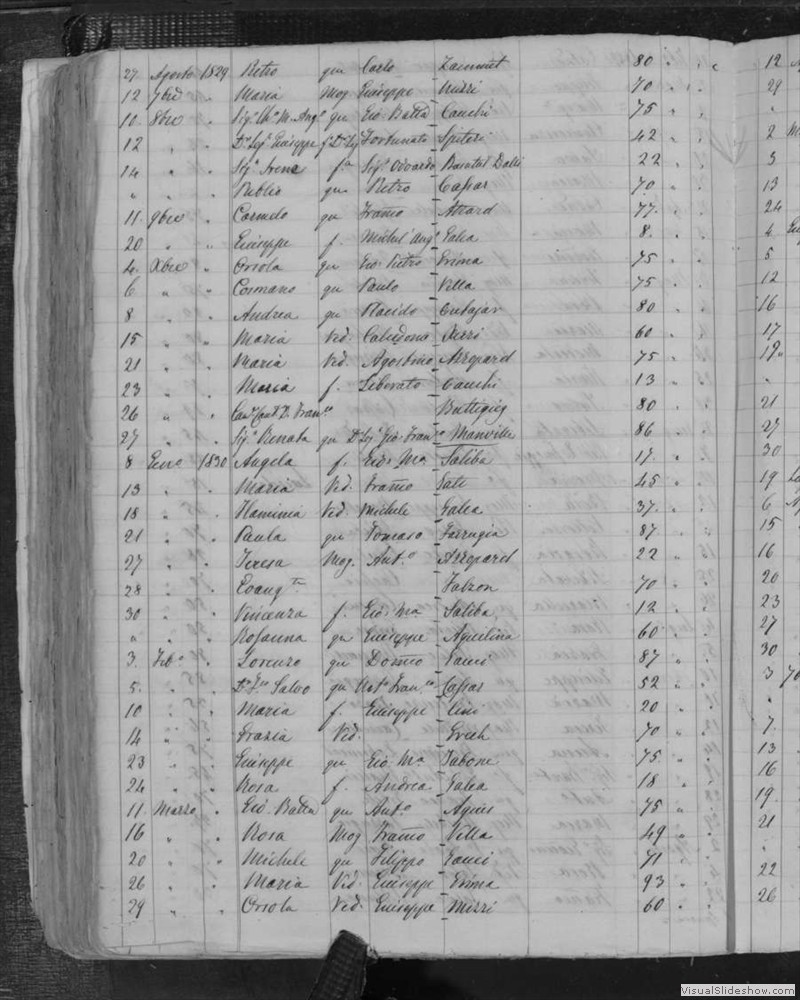 27 Agosto 1829 Pietro qm Carlo Zammut 80 " "
12 7bre " Maria Mog Giuseppe Mizzi 70 " "
10 8bre " Sigr M. Angl qm Gio Batta Cauchi 75 " "
12 " Dr Sigr Giuseppe f. Dr Sigr Fortunato Spiteri 42 " "
14 " Siga Irene fa Sigr Odoardo 22 " "
" " " Publio qm Pietro Cassar 70 " "
11 9bre " Carmelo qm Franco Attard 77 " "
20 " " Giuseppe f. Michel'Ango Galea 8 " "
4 Xbre " Orsola qm Gio Pietro Grima 75 " "
6 " " Cosmano qm Paulo Villa 75 " "
8 " Andrea qm Placido Cutajar 80 " "
15 " " Maria Ved. Calcedonio 60 " "
21 " " Maria Ved. Agostino Azzopard 75 " "
23 " Maria f. Liberato Cauchi 13 " "
26 " " Franco Buttigieg 80 " "
27 " " Siga Renata qm Dr Sigr Gio Franco Manville 86 "
8 Genro 1830 Angela f. Gio Ma Saliba 17 "
13 " Maria Ved. Franco 45 "
18 " Flaminia Ved. Michele Galea 37 "
21 " " Paula qm Tomaso Farrugia 87 "
27 " " Teresa Mog. Anto Azzopard 22 " "
28 " Evangta Falzon 70 " "
30 " Vincenza f. Gio Ma Saliba 12 " "
" " " Rosanna qm Giuseppe Aquilina 60 " "
3 Febo " Lorenzo qm Domco Gauci 87 " "
5 " " Salvo qm Franco Cassar 52 " "
10 " " Maria f. Giuseppe 20 "
14 " " Grazia Ved. Grech 70 "
23 " Giuseppe qm Gio Ma Tabone 75 " "
24 " " Rosa f. Andrea Galea 18 "
11 Marzo " Gio Batta qm Anto Agius 75 "
16 " " Rosa Mog Franco Villa 49 "
20 " " Michele qm Filippo Gauci 71 " "
26 " " Maria Ved. Giuseppe Grima 93 " "
29 " " Orsola Ved. Giuseppe Mizzi 60 " "
12
29
"
2
3
13
24
4
5
12
16
17
19
"
21
27
30
19
6
15
16
20
23
27
30
3
"
7
13
16
19
21
"
22
26
VisualSlideshow.com